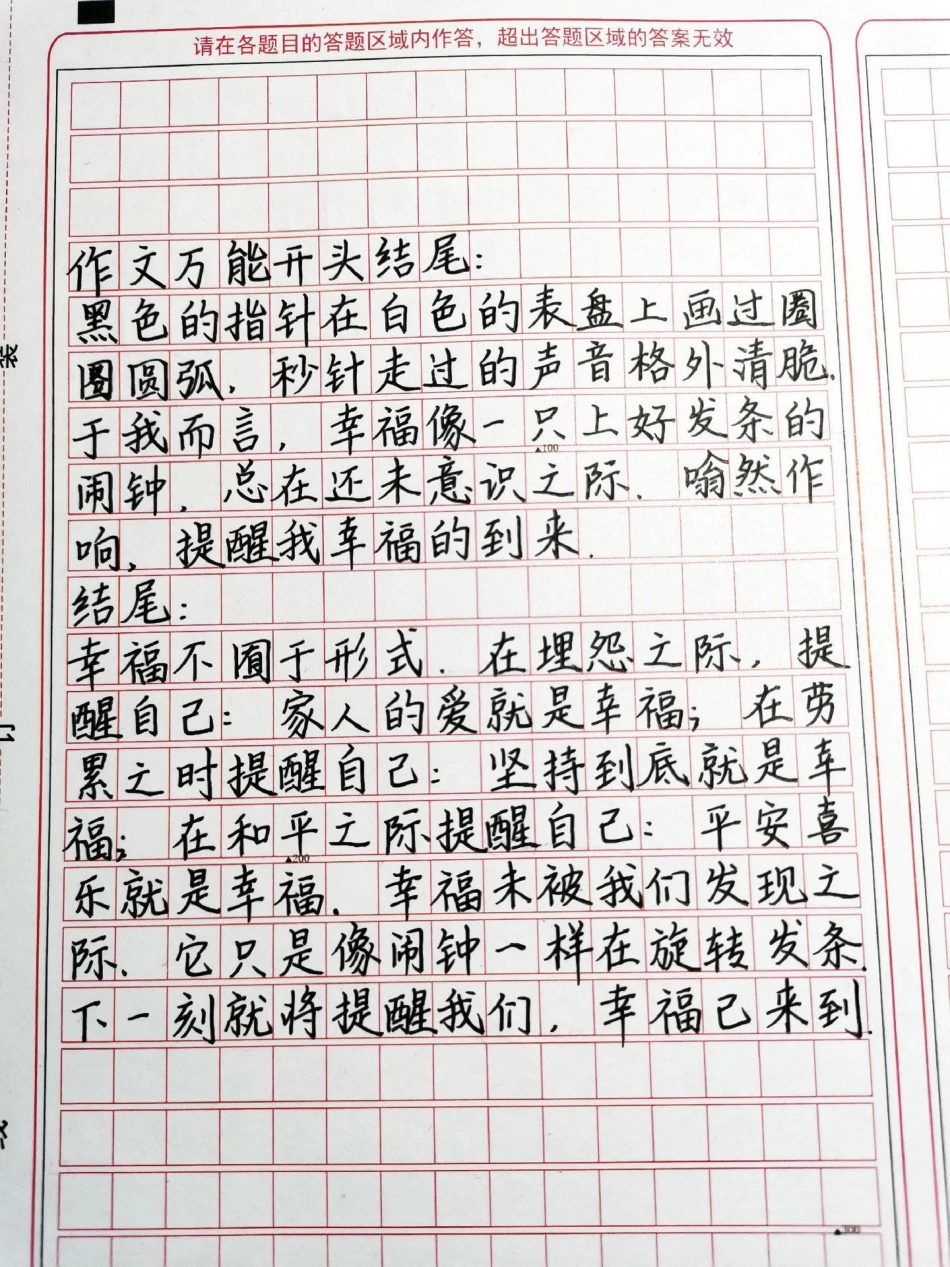 请在各题目的答题区域内作答，超出答题区域的答案无效
作文万能开头结尾：
黑色的指针在白色的表盘上画过圈
圈圆弧．秒针走过的声音格外清脆．
于我而言，幸福像一只上好发条的
▲100
闹钟．总在还未意识之际．嗡然作
响，提醒我幸福的到来．
结尾：
幸福不囿于形式．在埋怨之际，提
醒自己：家人的爱就是幸福；在劳
累之时提醒自己：坚持到底就是幸
福；在和平之际提醒自己：平安喜
▲200
乐就是幸福．幸福未被我们发现之
际．它只是像闹钟一样在旋转发条．
下一刻就将提醒我们，幸福已来到．
▲300
装
订